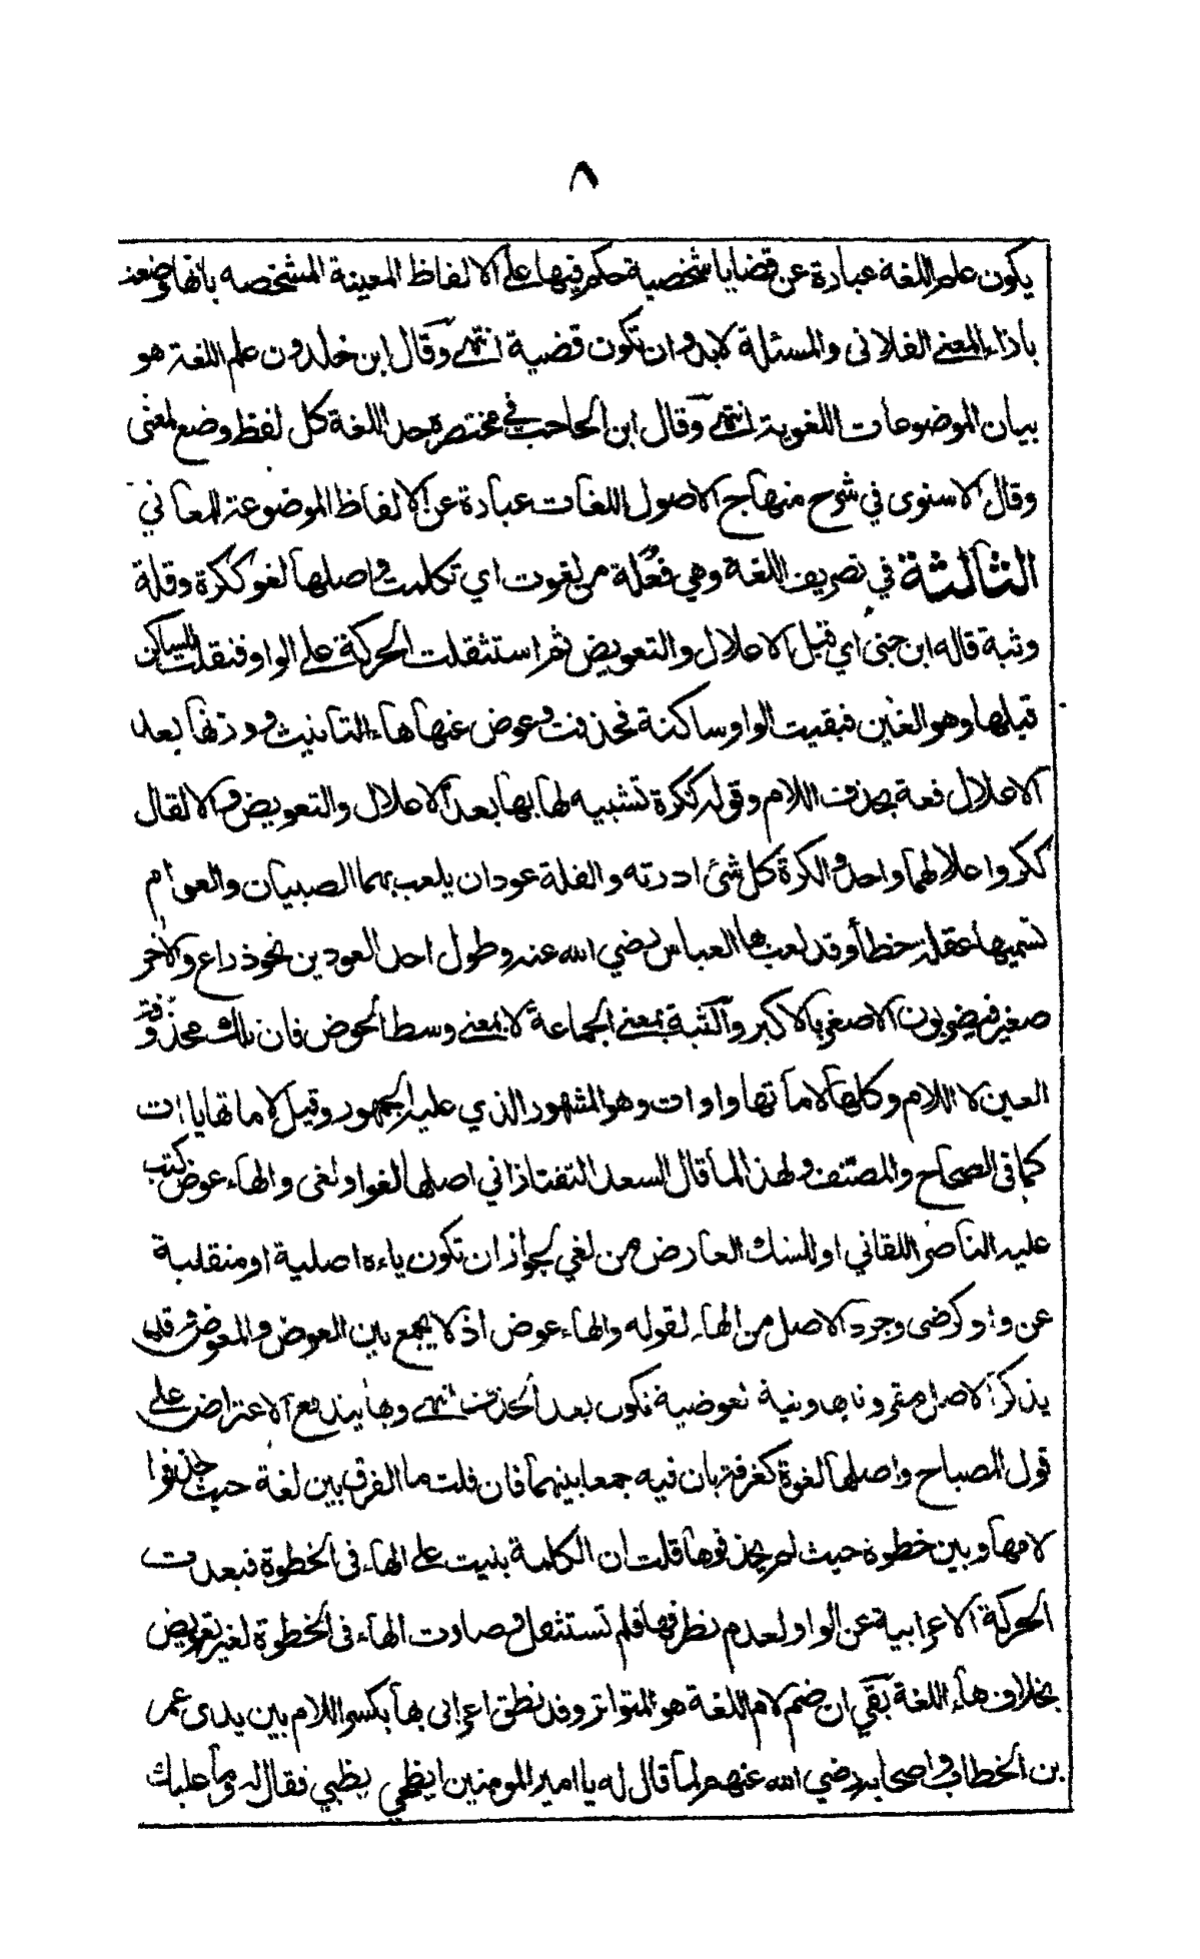 ٨
يكون علم اللغة عبارة عن قضايا شخصية حكم فيها على الالفاظ المعينة المشخصه بانها وضعت
بأذاء المعنى الفلانى والمسئلة لابد وان تكون قضية انتهى وقال ابن خلدون علم اللغة هو
بيان الموضوعات اللغوية انتهى وقال ابن الحاجب في مختصره حد اللغة كل لفظ وضع لمعنى
وقال الاسنوى في شرح منهاج الاصول اللغات عبارة عن الالفاظ الموضوعة للمعاني
الثالثة في تصريف اللغة وهي فُعلة من لغوت اي تكلمت واصلها لغو ككرة وقلة
وثبة قاله ابن جنى اي قبل الاعلال والتعويض ثم استثقلت الحركة على الواو فنقلت للساكن
قبلها وهو الغين فبقيت الواو ساكنة فحذفت وعوض عنها هاء التانيث ووزنها بعد
الاعلال فعة بحذف اللام وقوله ككرة تشبيه لها بها بعد الاعلال والتعويض والا لقال
ككرو اعلالهما واحد والكرة كل شئ ادرته والقلة عودان يلعب بهما الصبيان والعوام
تسميها عقلة خطأ وقد لعب بها العباس رضي الله عنه وطول احد العودين نحو ذراع والاخر
صغير فيضربون الاصغر بالاكبر والثبة بمعنى الجماعة لا بمعنى وسط الحوض فان تلك محذوفة
العين لا اللام وكلها لاماتها واوات وهو المشهور الذي عليه الجمهور وقيل لاماتها ياات
كما فى الصحاح والمصنف ولهذا لما قال السعد التفتازاني اصلها لغو او لغى والهاء عوض كتب
عليه الناصر اللقاني او للشك العارض من لغي لجواز ان تكون ياءه اصلية او منقلبة
عن واو كرضى وجرد الاصل من الهاء لقوله والهاء عوض اذ لا يجمع بين العوض والمعوض وقلما
يذكر الاصل مقرونا بها ونية تعوضية تكون بعد الحذف انتهى وبها يندفع الاعتراض على
قول المصباح واصلها لغوة كغرفة بان فيه جمعا بينهما فان قلت ما الفرق بين لغة حيث حذفوا
لامها وبين خطوة حيث لم يحذفوها قلت ان الكلمة بنيت على الهاء فى الخطوة فبعدت
الحركة الاعرابية عن الواو لعدم نظرفها فلم تستثقل وصارت الهاء فى الخطوة لغير تعويض
بخلاف هاء اللغة بقي ان ضم لام اللغة هو المتواتر وقد نطق اعرابى بها بكسر اللام بين يدى عمر
بن الخطاب واصحابه رضي الله عنهم لما قال له يا امير المومنين ايظحي بظبي فقال له وما عليك